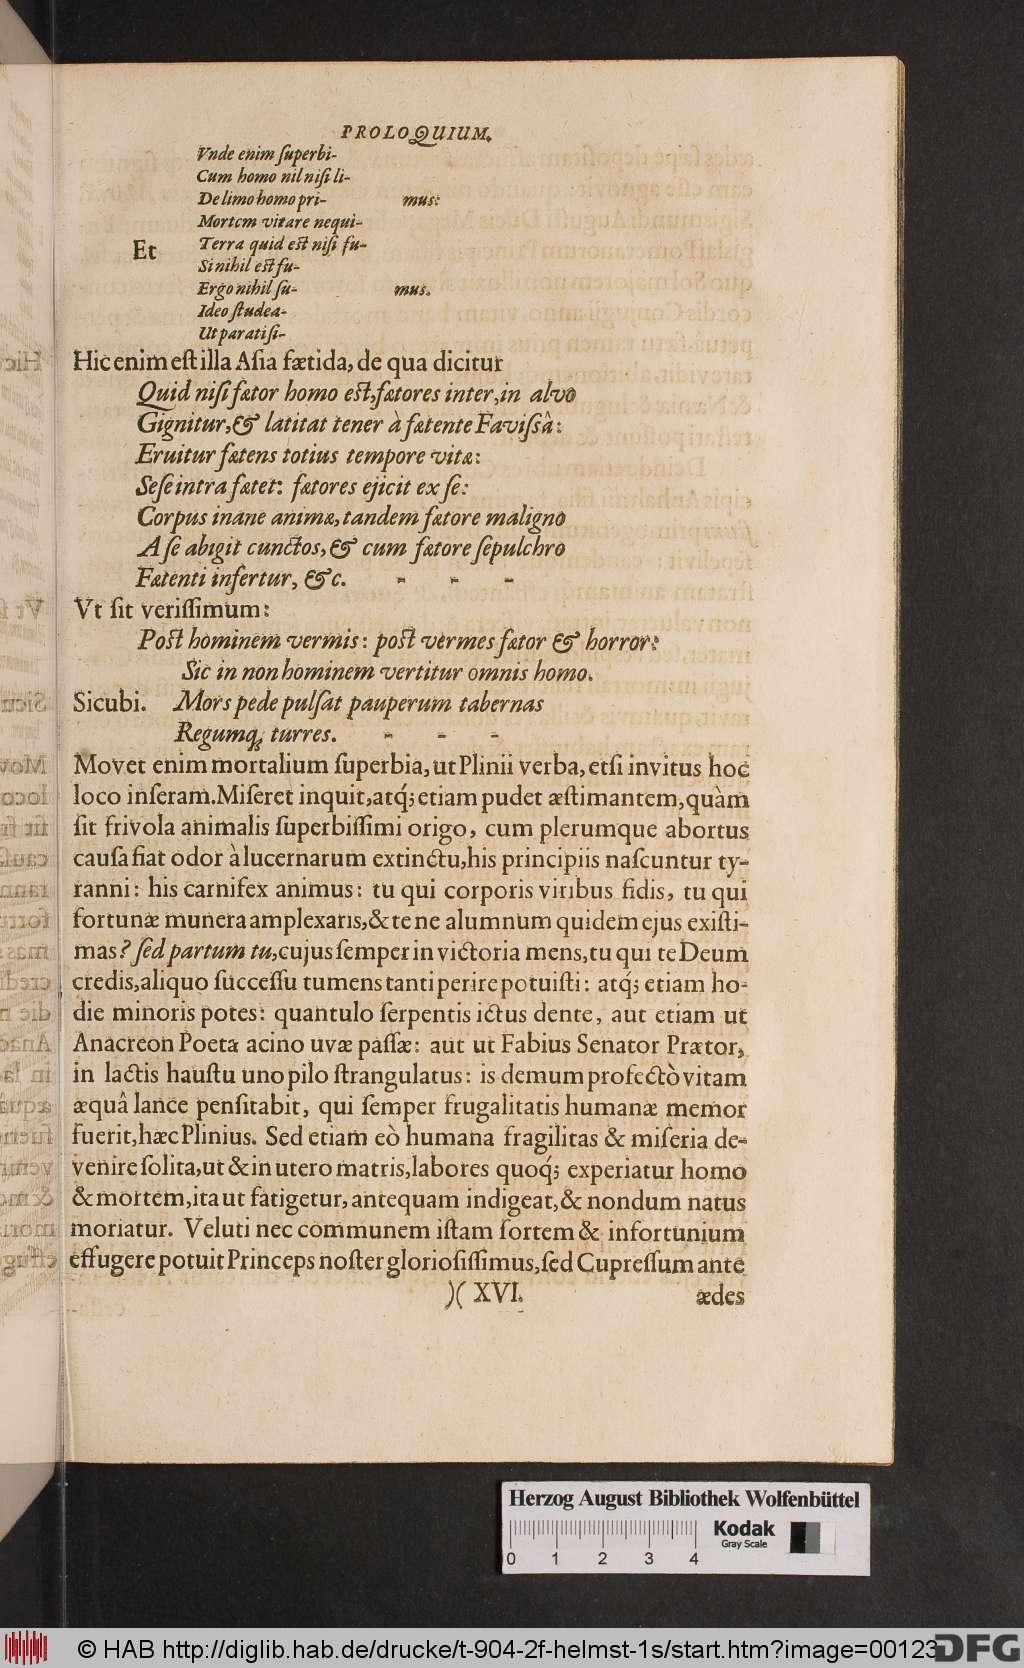 PROLOQUIUM.
Vnde enim ſuperbi-
Cum homo nil niſi li-
De limo homo pri- mus:
Mortem vitare nequi-
Et Terra quid est niſi fu-
Si nihil est fu-
Ergo nihil ſu- mus.
Ideo studea-
Ut parati ſi-
Hic enim eſt illa Aſia fætida, de qua dicitur
Quid niſi fætor homo est, fætores inter, in alvo
Gignitur, & latitat tener à fætente Faviſsâ:
Eruitur fætens totius tempore vitæ:
Seſe intra fætet: fætores ejicit ex ſe:
Corpus inane animæ, tandem fætore maligno
A ſe abigit cunctos, & cum fætore ſepulchro
Fætenti infertur, &c. - - -
Vt ſit veriſſimum:
Post hominem vermis: post vermes fætor & horror:
Sic in non hominem vertitur omnis homo.
Sicubi. Mors pede pulſat pauperum tabernas
Regumq; turres. - - -
Movet enim mortalium ſuperbia, ut Plinii verba, etſi invitus hoc
loco inſeram. Miſeret inquit, atq́; etiam pudet æſtimantem, quàm
ſit frivola animalis ſuperbiſſimi origo, cum plerumque abortus
cauſa fiat odor à lucernarum extinctu, his principiis naſcuntur ty-
ranni: his carnifex animus: tu qui corporis viribus fidis, tu qui
fortunæ munera amplexaris, & te ne alumnum quidem ejus exiſti-
mas? ſed partum tu, cujus ſemper in victoria mens, tu qui te Deum
credis, aliquo ſucceſſu tumens tanti perire potuiſti: atq́; etiam ho-
die minoris potes: quantulo ſerpentis ictus dente, aut etiam ut
Anacreon Poeta acino uvæ paſſæ: aut ut Fabius Senator Prætor,
in lactis hauſtu uno pilo ſtrangulatus: is demum profectò vitam
æquâ lance penſitabit, qui ſemper frugalitatis humanæ memor
fuerit, hæc Plinius. Sed etiam eò humana fragilitas & miſeria de-
venire ſolita, ut & in utero matris, labores quoq́; experiatur homo
& mortem, ita ut fatigetur, antequam indigeat, & nondum natus
moriatur. Veluti nec communem iſtam ſortem & infortunium
effugere potuit Princeps noſter glorioſiſſimus, ſed Cupreſſum ante
)( XVI. ædes
Herzog August Bibliothek Wolfenbüttel
Kodak
Gray Scale
0 1 2 3 4
© HAB http://diglib.hab.de/drucke/t-904-2f-helmst-1s/start.htm?image=00123
DFG